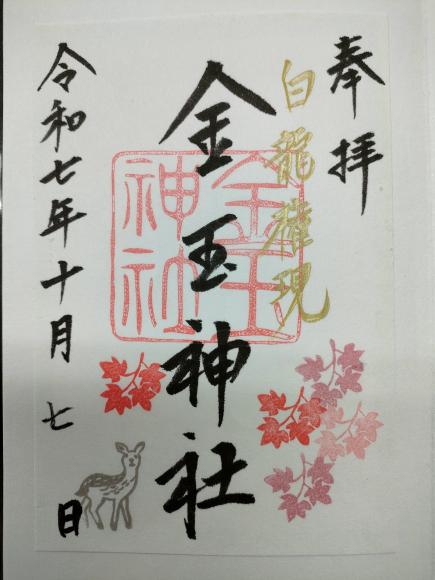 奉拝
白龍権現
金玉神社
金玉神社
令和七年十月七日